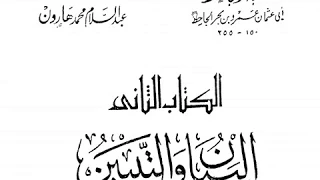 أبى عثمان عمرو بن بحر الجاحظ
عبد السلام محمد هارون
١٥٠ - ٢٥٥
الكتاب الثانى
البيان والتبيين